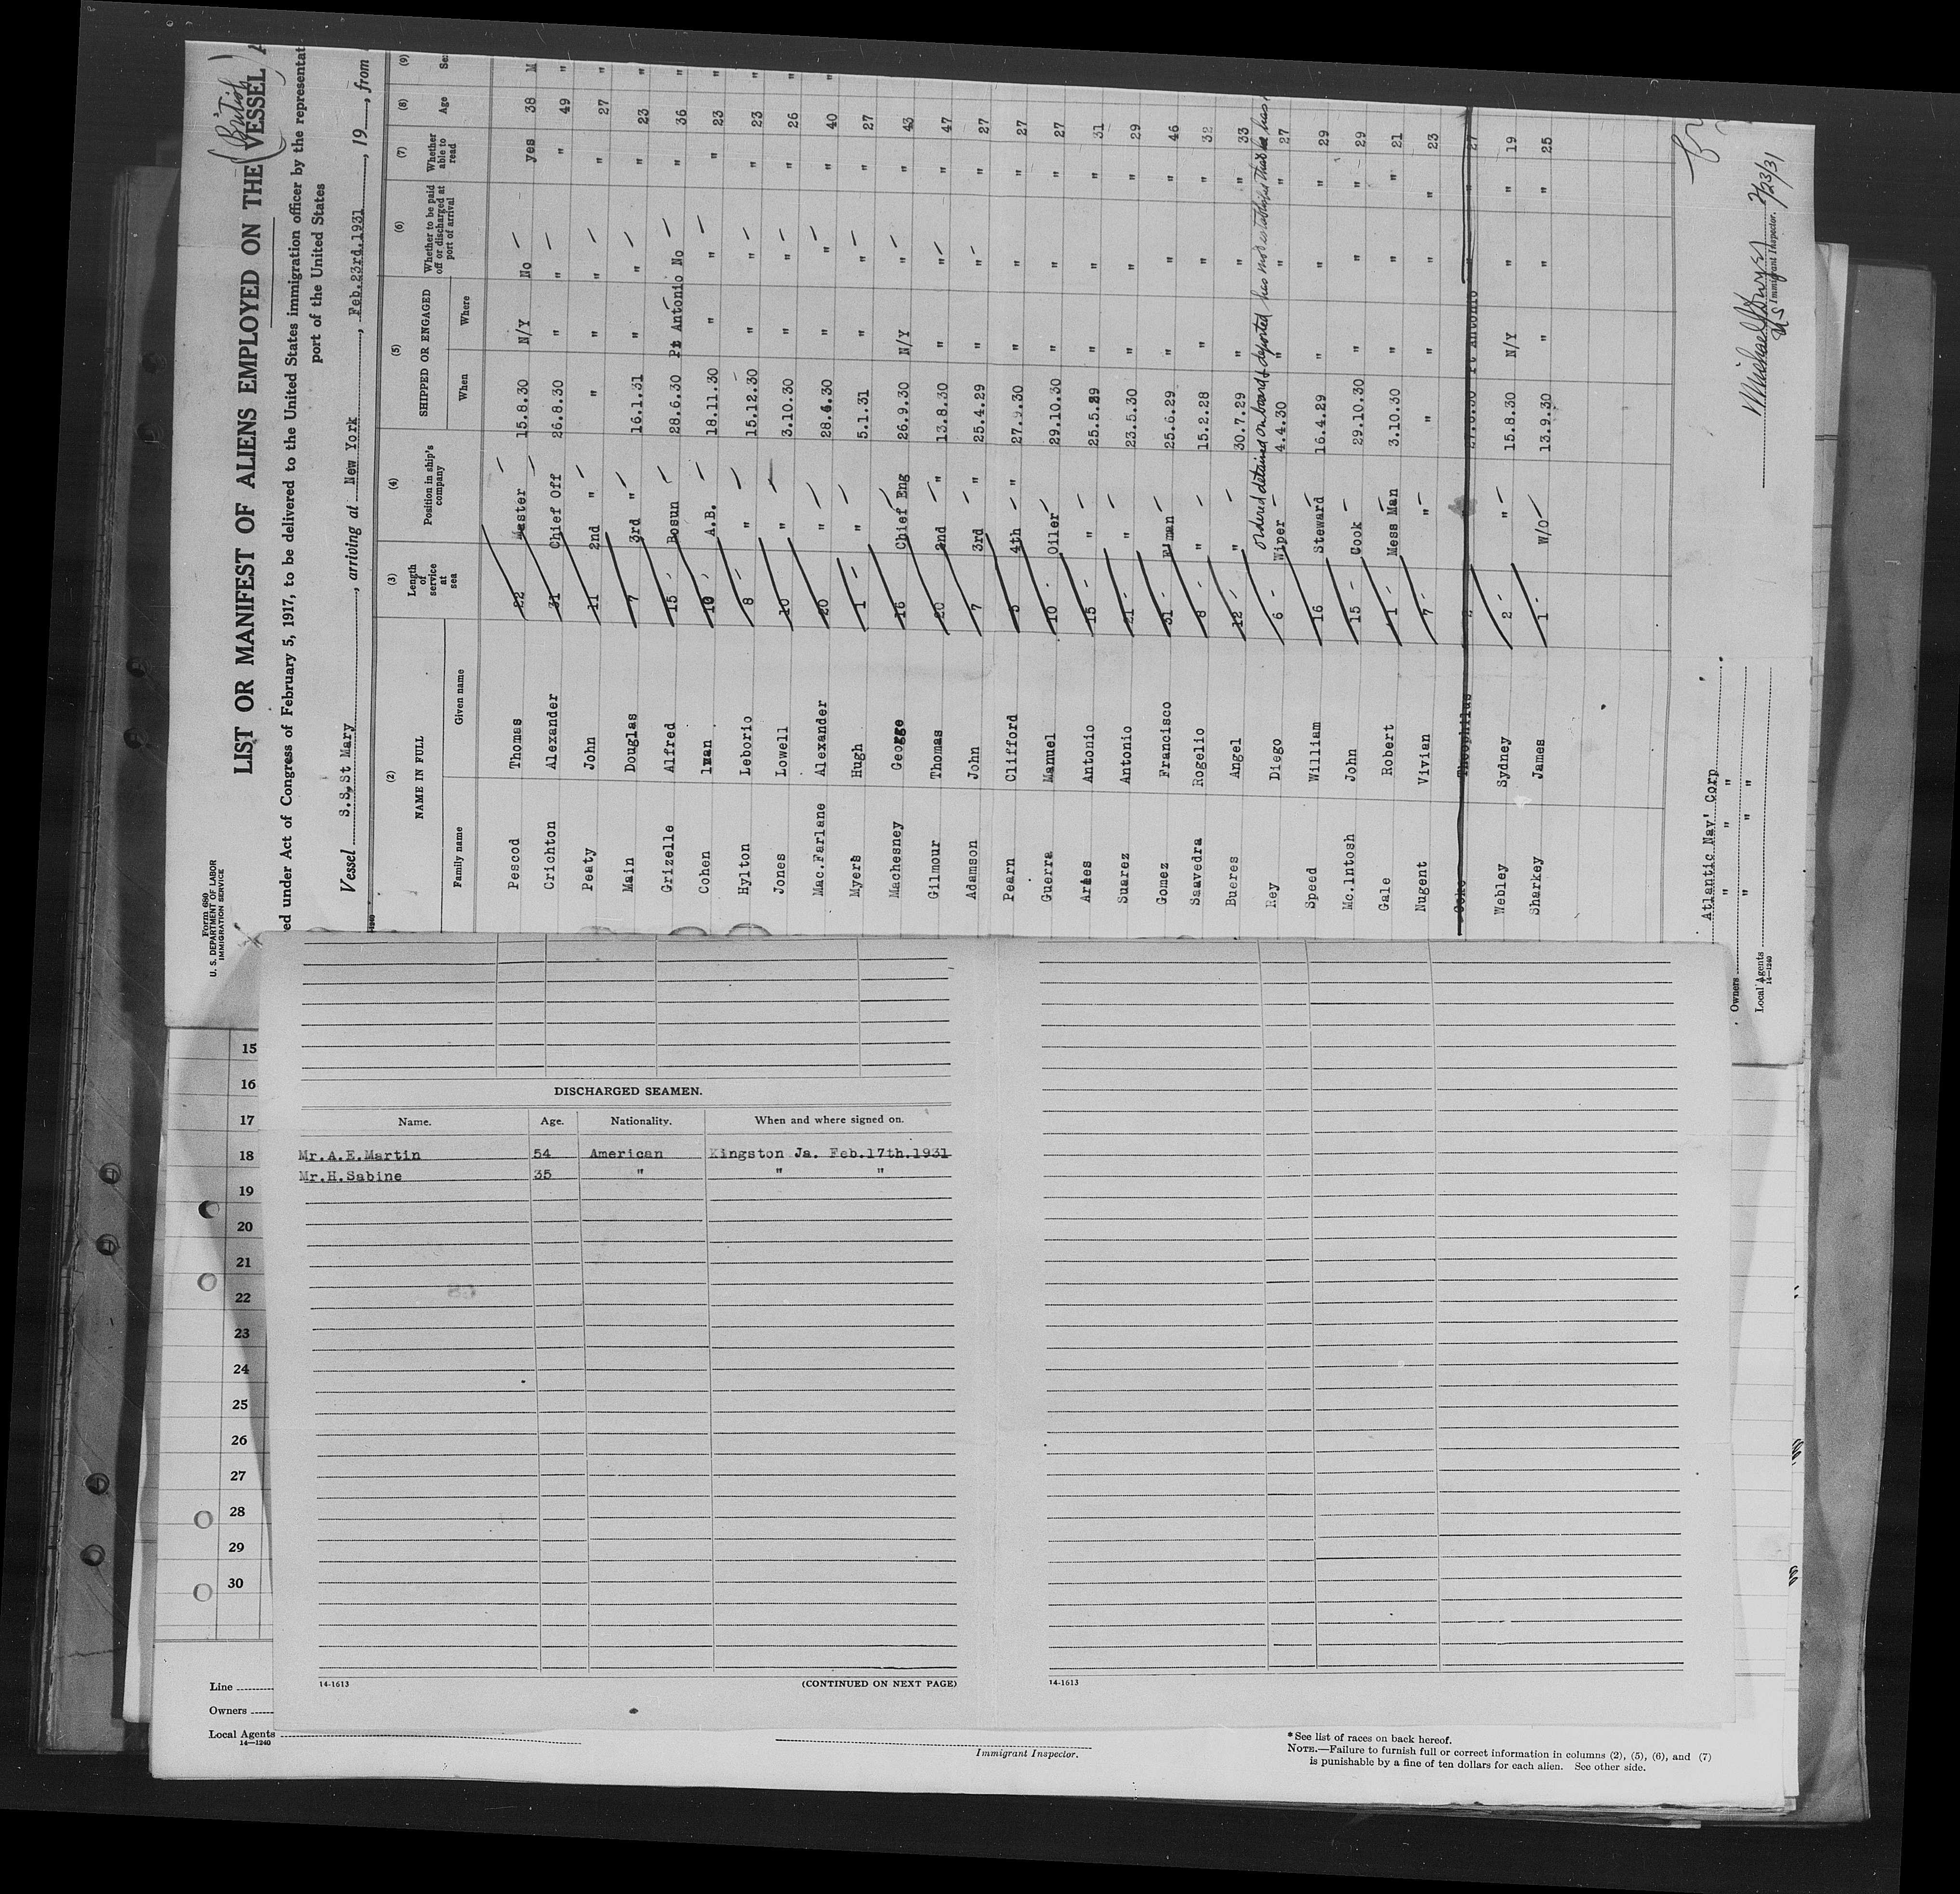 Form 680
U. S. DEPARTMENT OF LABOR
IMMIGRATION SERVICE
LIST OR MANIFEST OF ALIENS EMPLOYED ON THE VESSEL
(British)
ed under Act of Congress of February 5, 1917, to be delivered to the United States immigration officer by the representat
port of the United States
Vessel S.S.St Mary, arriving at New York, Feb.23rd.1931, 19, from
(2) (3) (4) (5) (6) (7) (8) (9)
NAME IN FULL Length of service at sea Position in ship's company SHIPPED OR ENGAGED Whether to be paid off or discharged at port of arrival Whether able to read Age Se
Family name Given name When Where
Pescod Thomas 22 Master 15.8.30 N/Y No yes 38 M
Crichton Alexander 31 Chief Off 26.8.30 " " " 49 "
Peaty John 11 2nd " " " " " 27 "
Main Douglas 7 3rd " 16.1.31 " " " 23 "
Grizelle Alfred 15 Bosun 28.6.30 Pt Antonio No " 36 "
Cohen 10 A.B. 18.11.30 " " " 23 "
Hylton Leborio 8 " 15.12.30 " " " 23 "
Jones Lowell 10 " 3.10.30 " " " 26 "
Mac.Farlane Alexander 20 " 28.6.30 " " " 40 "
Myers Hugh 1 " 5.1.31 " " " 27
Machesney George 16 Chief Eng 26.9.30 N/Y " " 43
Gilmour Thomas 20 2nd " 13.8.30 " " " 47
Adamson John 7 3rd " 25.4.29 " " " 27
Pearn Clifford 5 4th " 27.9.30 " " " 27
Guerra Manuel 10 Oiler 29.10.30 " " " 27
Antonio 15 " 25.5.29 " " " 31
Suarez Antonio 21 " 23.5.30 " " " 29
Gomez Francisco 31 F'man 25.6.29 " " " 46
Saavedra Rogelio 8 " 15.2.28 " " " 32
Bueres Angel 12 " 30.7.29 " " " 33
Ordered detained on board & deported has not established that he has
Rey Diego 6 Wiper 4.4.30 " " " 27
Speed William 16 Steward 16.4.29 " " " 29
Mc.Intosh John 15 Cook 29.10.30 " " " 29
Gale Robert 1 Mess Man 3.10.30 " " " 21
Nugent Vivian 7 " " " " " 23
Coke Theophilus 2 27.6.30 Pt Antonio " " 27
Webley Sydney 2 " 15.8.30 N/Y " " 19
Sharkey James 1 W/O 13.9.30 " " " 25
Atlantic Nav' Corp
Owners " " " "
Local Agents " " "
14—1240
2/23/31
US Immigrant Inspector.
15
16
17
18
19
20
21
22
23
24
25
26
27
28
29
30
DISCHARGED SEAMEN.
Name. Age. Nationality. When and where signed on.
Mr.A.E.Martin 54 American Kingston Ja. Feb.17th.1931
Mr.H.Sabine 35 " " "
14-1613 (CONTINUED ON NEXT PAGE)
14-1613
Line
Owners
Local Agents
14—1240
Immigrant Inspector.
* See list of races on back hereof.
NOTE.—Failure to furnish full or correct information in columns (2), (5), (6), and (7)
is punishable by a fine of ten dollars for each alien. See other side.